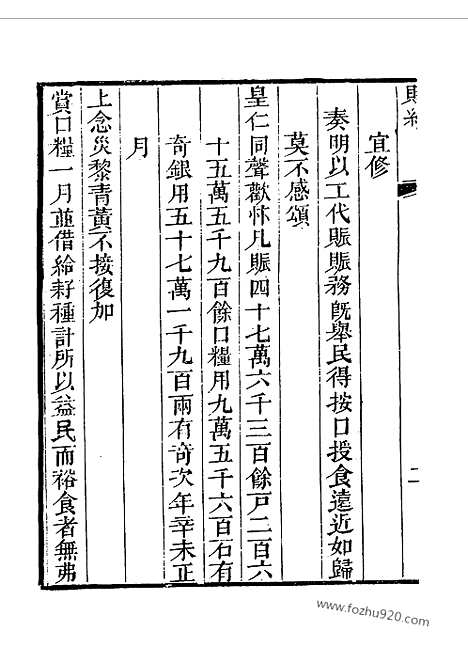 宜修
奏明以工代賑賑務既舉民得按口授食遠近如歸
莫不感頌
皇仁同聲歡忭凡賑四十七萬六千三百餘戸二百六
十五萬五千九百餘口糧用九萬五千六百石有
奇銀用五十七萬一千九百兩有奇次年辛未正
月
上念災黎青黃不接復加
賞口糧一月並借給耔種計所以益民而裕食者無弗
二
www.fozhu920.com